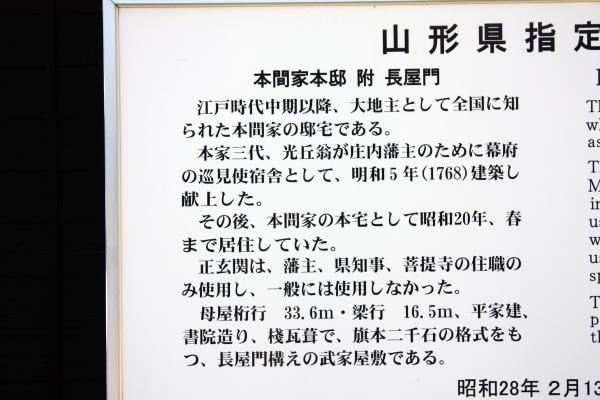 山形県指定
本間家本邸 附 長屋門
江戸時代中期以降、大地主として全国に知
られた本間家の邸宅である。
本家三代、光丘翁が庄内藩主のために幕府
の巡見使宿舎として、明和5年(1768)建築し
献上した。
その後、本間家の本宅として昭和20年、春
まで居住していた。
正玄関は、藩主、県知事、菩提寺の住職の
み使用し、一般には使用しなかった。
母屋桁行 33.6m・梁行 16.5m、平家建、
書院造り、棧瓦葺で、旗本二千石の格式をも
つ、長屋門構えの武家屋敷である。
昭和28年 2月13